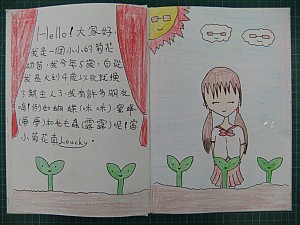 Hello! 大家好,
我是一個小小的菊花
幼苗,我今年5歲,自從
我長大到4歲以後就換
了新主人了,我有許多朋友
喔!例如蝴蝶(咪咪)蜜蜂
(蜜蜜)和毛毛蟲(露露)呢!當
小菊花真Loucky。